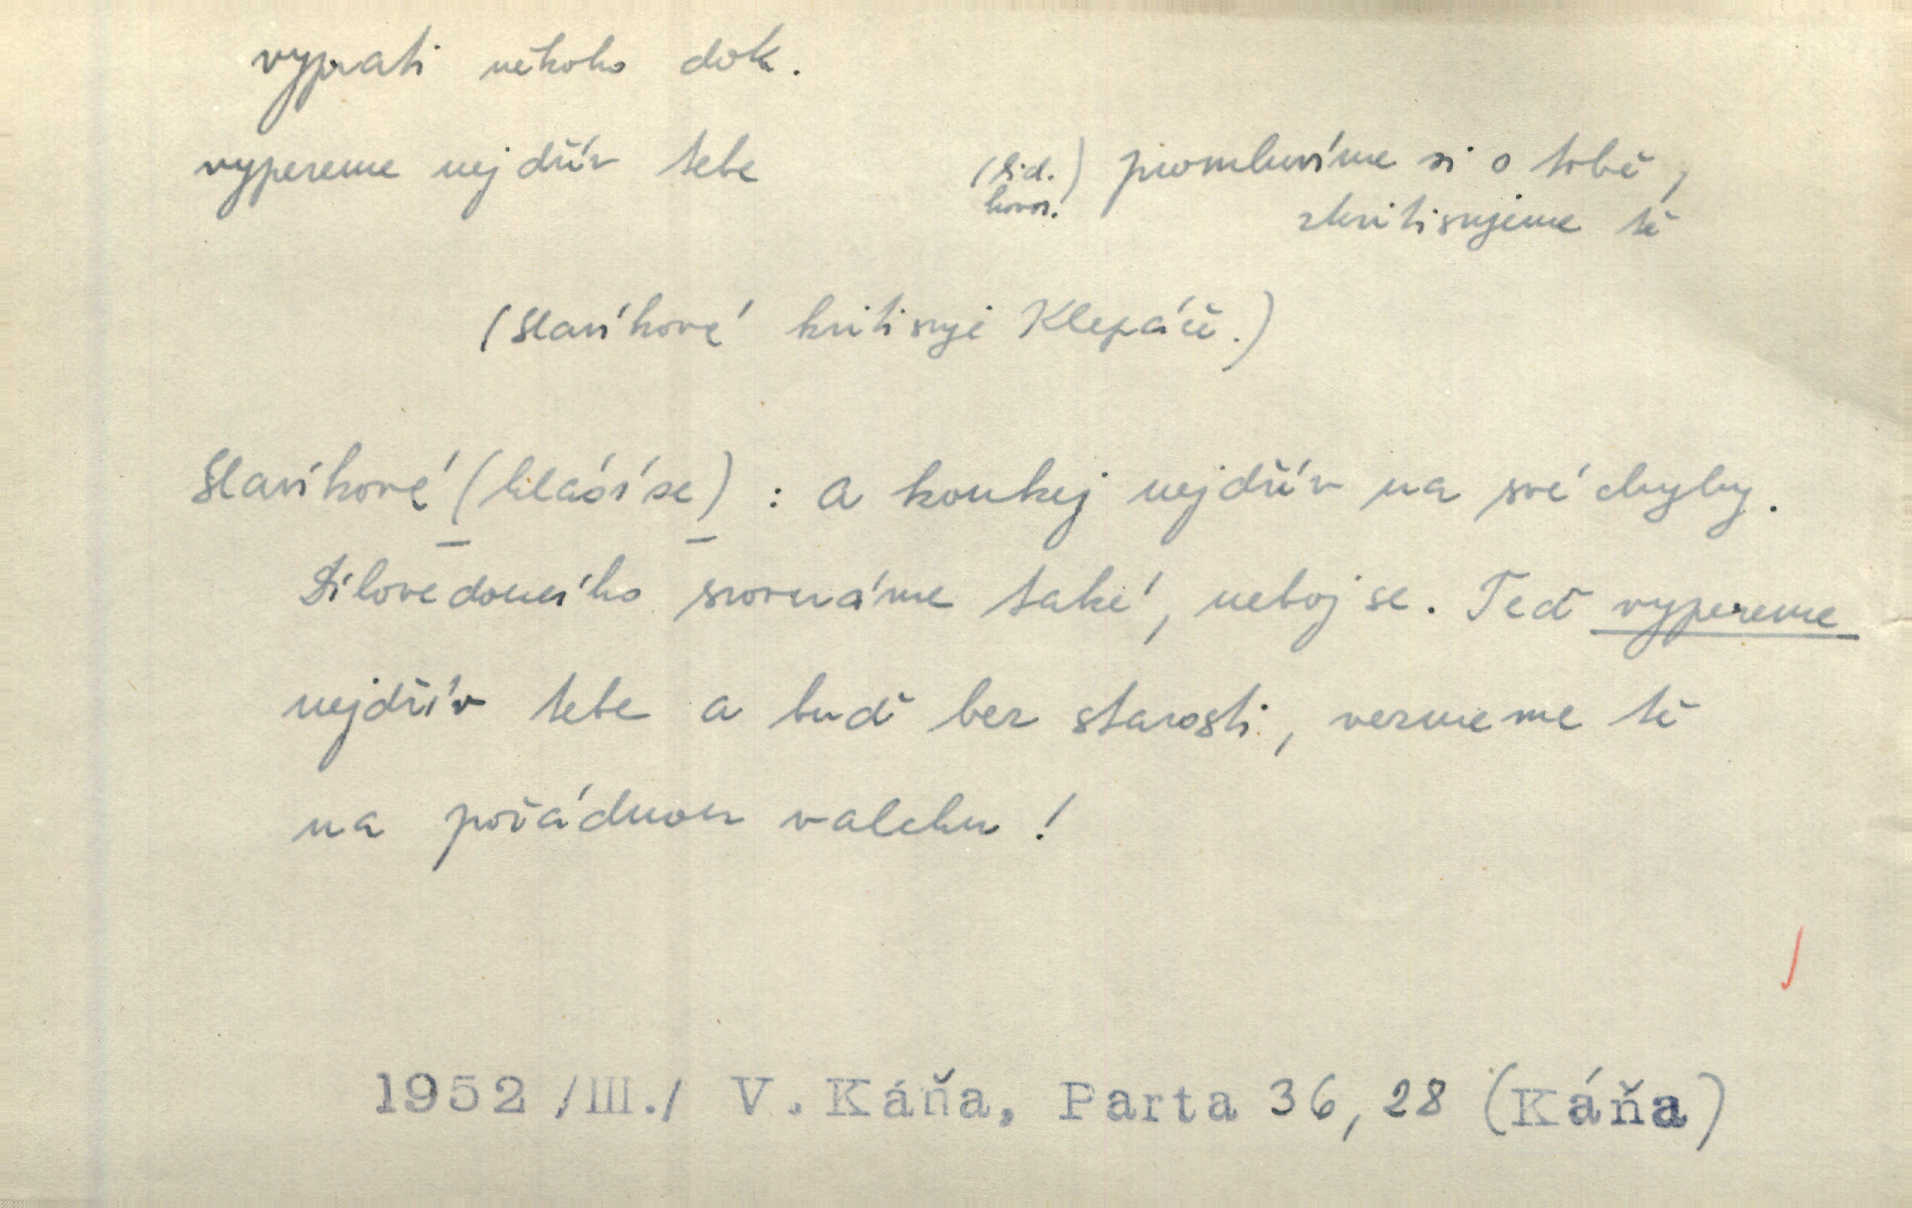 vyprati někoho dok.
vypereme nejdřív tebe (lid. hovor.) promluvíme si o tobě,
zkritisujeme tě
(Slavíkové kritisuje Klepáče.)
Slavíkové (hlásí se) : A koukej nejdřív na své chyby.
Dílovedoucího srovnáme také, neboj se. Teď vypereme
nejdřív tebe a buď bez starosti, vezmeme tě
na pořádnou valchu!
1952 /III./ V. Káňa, Parta 36, 28 (Káňa)